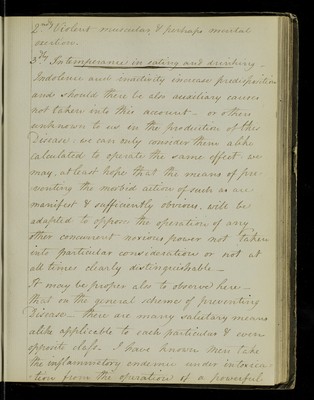 2nd Violent muscular & perhaps mental
exertion.
3dly Intemperance in eating and drinking –
Indolence and inactivity increase predisposition
and should there be also auxiliary causes
not taken into this account – or others
unknown to us in the production of this
Disease, we can only consider them alike
calculated to operate the same effect we
may, at least hope that the means of pre-
venting the morbid action of such as are
manifest & sufficiently obvious, will be
adapted to oppose the operation of any
other concurrent noxious power not taken
into particular consideration or not at
all times clearly distinguishable –
It may be proper also to observe here –
that on the general scheme of preventing
Disease – there are many salutary means
alike applicable to each particular & even
opposite class – I have known Men take
the inflammatory endemic under intoxica-
-tion from the operation of a powerful